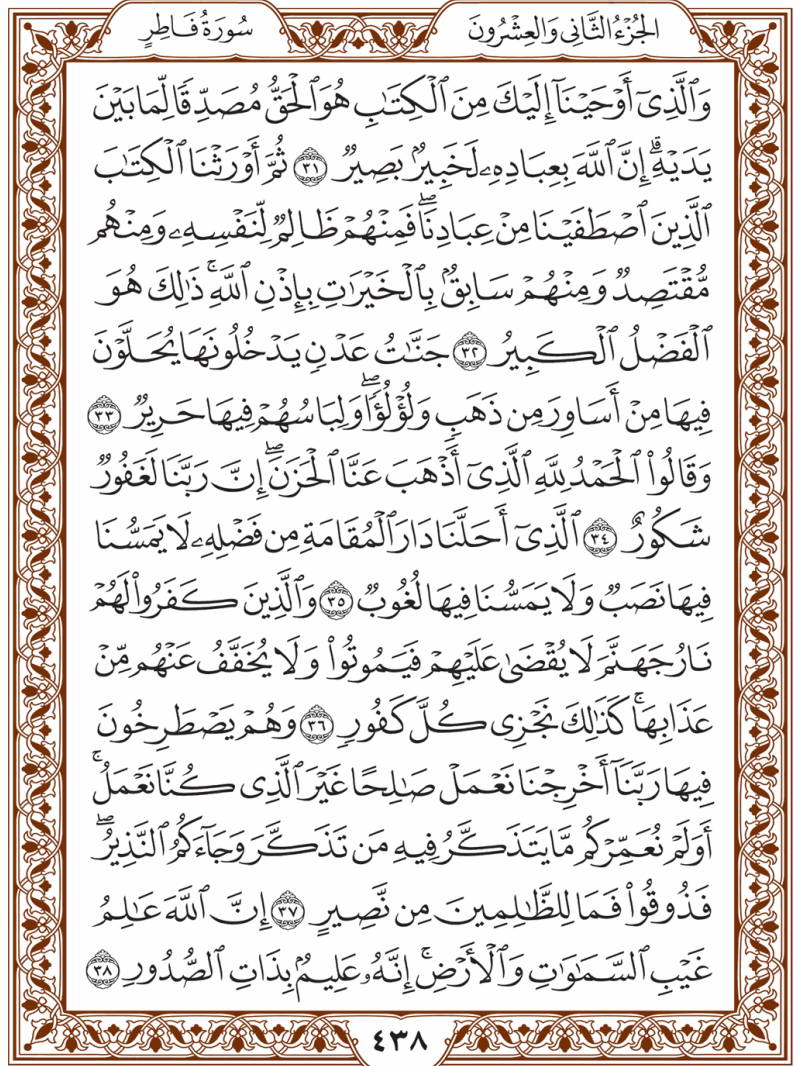 الجُزْءُ الثَّانِي وَالعِشْرُونَ
سُورَةُ فَاطِرٍ
وَٱلَّذِيٓ أَوْحَيْنَآ إِلَيْكَ مِنَ ٱلْكِتَٰبِ هُوَ ٱلْحَقُّ مُصَدِّقًا لِّمَا بَيْنَ
يَدَيْهِۗ إِنَّ ٱللَّهَ بِعِبَادِهِۦ لَخَبِيرُۢ بَصِيرٌ ٣١ ثُمَّ أَوْرَثْنَا ٱلْكِتَٰبَ
ٱلَّذِينَ ٱصْطَفَيْنَا مِنْ عِبَادِنَاۖ فَمِنْهُمْ ظَالِمٌ لِّنَفْسِهِۦ وَمِنْهُم
مُّقْتَصِدٌ وَمِنْهُمْ سَابِقُۢ بِٱلْخَيْرَٰتِ بِإِذْنِ ٱللَّهِۚ ذَٰلِكَ هُوَ
ٱلْفَضْلُ ٱلْكَبِيرُ ٣٢ جَنَّٰتُ عَدْنٍ يَدْخُلُونَهَا يُحَلَّوْنَ
فِيهَا مِنْ أَسَاوِرَ مِن ذَهَبٍ وَلُؤْلُؤًاۖ وَلِبَاسُهُمْ فِيهَا حَرِيرٌ ٣٣
وَقَالُوا۟ ٱلْحَمْدُ لِلَّهِ ٱلَّذِيٓ أَذْهَبَ عَنَّا ٱلْحَزَنَۖ إِنَّ رَبَّنَا لَغَفُورٌ
شَكُورٌ ٣٤ ٱلَّذِيٓ أَحَلَّنَا دَارَ ٱلْمُقَامَةِ مِن فَضْلِهِۦ لَا يَمَسُّنَا
فِيهَا نَصَبٌ وَلَا يَمَسُّنَا فِيهَا لُغُوبٌ ٣٥ وَٱلَّذِينَ كَفَرُوا۟ لَهُمْ
نَارُ جَهَنَّمَ لَا يُقْضَىٰ عَلَيْهِمْ فَيَمُوتُوا۟ وَلَا يُخَفَّفُ عَنْهُم مِّنْ
عَذَابِهَاۚ كَذَٰلِكَ نَجْزِي كُلَّ كَفُورٍ ٣٦ وَهُمْ يَصْطَرِخُونَ
فِيهَا رَبَّنَآ أَخْرِجْنَا نَعْمَلْ صَٰلِحًا غَيْرَ ٱلَّذِي كُنَّا نَعْمَلُۚ
أَوَلَمْ نُعَمِّرْكُم مَّا يَتَذَكَّرُ فِيهِ مَن تَذَكَّرَ وَجَآءَكُمُ ٱلنَّذِيرُۖ
فَذُوقُوا۟ فَمَا لِلظَّٰلِمِينَ مِن نَّصِيرٍ ٣٧ إِنَّ ٱللَّهَ عَٰلِمُ
غَيْبِ ٱلسَّمَٰوَٰتِ وَٱلْأَرْضِۚ إِنَّهُۥ عَلِيمُۢ بِذَاتِ ٱلصُّدُورِ ٣٨
٤٣٨